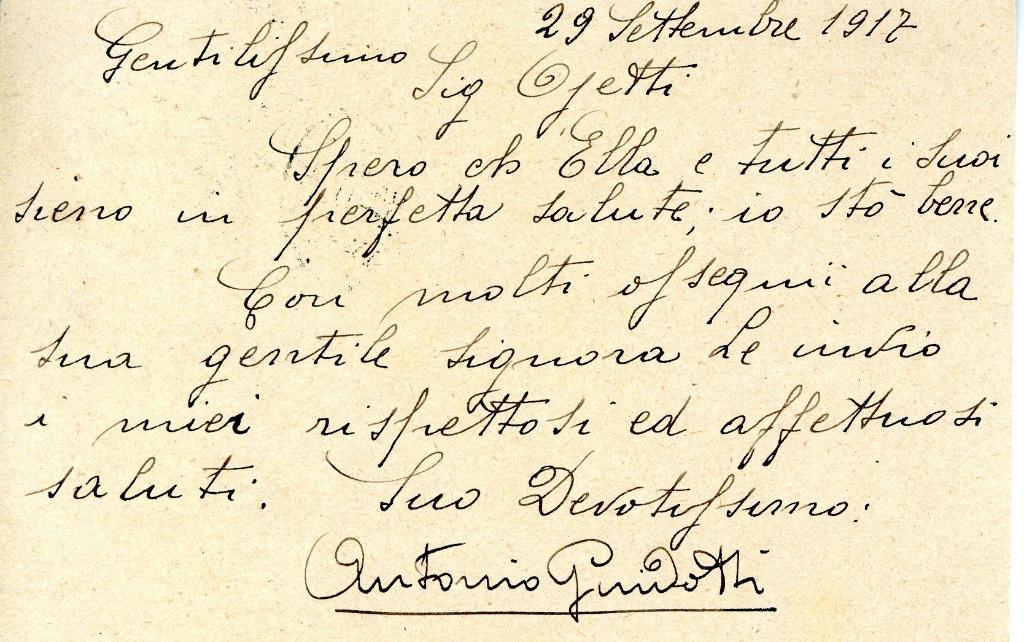 29 Settembre 1917
Gentilissimo
Sig Ojetti
Spero ch Ella e tutti i suoi
sieno in perfetta salute; io stò bene.
Con molti ossequii alla
sua gentile signora Le invio
i miei rispettosi ed affettuosi
saluti. Suo Devotissimo:
Antonio Guidotti